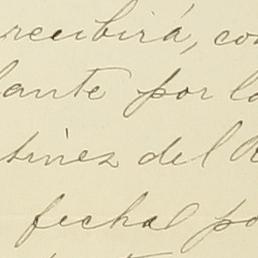 recibirá, con
lante por lo
tinez del R
fechal po